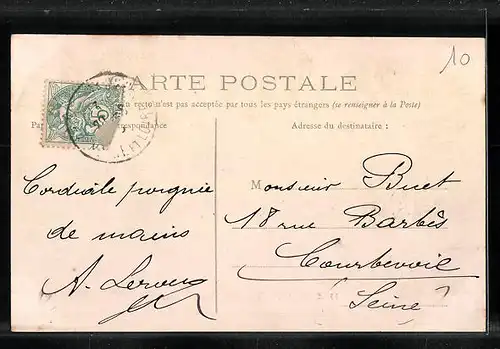 10
CARTE POSTALE
recto n'est pas acceptée par tous les pays étrangers (se renseigner à la Poste)
Adresse du destinataire :
Cordiale poignée
de mains
A.
Monsieur Buet
18 rue Barbès
Courbevoie
Seine